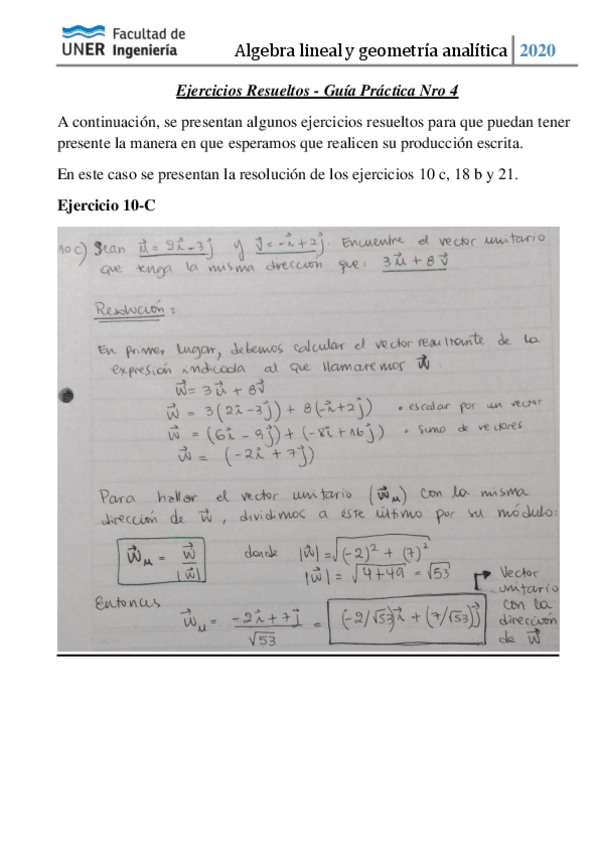 Facultad de
UNER Ingeniería
Algebra lineal y geometría analítica 2020
Ejercicios Resueltos - Guía Práctica Nro 4
A continuación, se presentan algunos ejercicios resueltos para que puedan tener
presente la manera en que esperamos que realicen su producción escrita.
En este caso se presentan la resolución de los ejercicios 10 c, 18 b y 21.
Ejercicio 10-C
10c) Sean u⃗ = 2i⃗ - 3j⃗ y v⃗ = -i⃗ + 2j⃗. Encuentre el vector unitario
que tenga la misma dirección que: 3u⃗ + 8v⃗
Resolución:
En primer lugar, debemos calcular el vector resultante de la
expresión indicada al que llamaremos w⃗
w⃗ = 3u⃗ + 8v⃗
w⃗ = 3(2i⃗ - 3j⃗) + 8(-i⃗ + 2j⃗) • escalar por un vector
w⃗ = (6i⃗ - 9j⃗) + (-8i⃗ + 16j⃗) • suma de vectores
w⃗ = (-2i⃗ + 7j⃗)
Para hallar el vector unitario (w⃗ᵤ) con la misma
dirección de w⃗, dividimos a éste último por su módulo:
w⃗ᵤ = w⃗ / |w⃗| donde |w⃗| = √((-2)² + (7)²)
|w⃗| = √(4+49) = √53
Entonces w⃗ᵤ = (-2i⃗ + 7j⃗) / √53 = (-2/√53)i⃗ + (7/√53)j⃗
Vector
unitario
con la
dirección
de w⃗